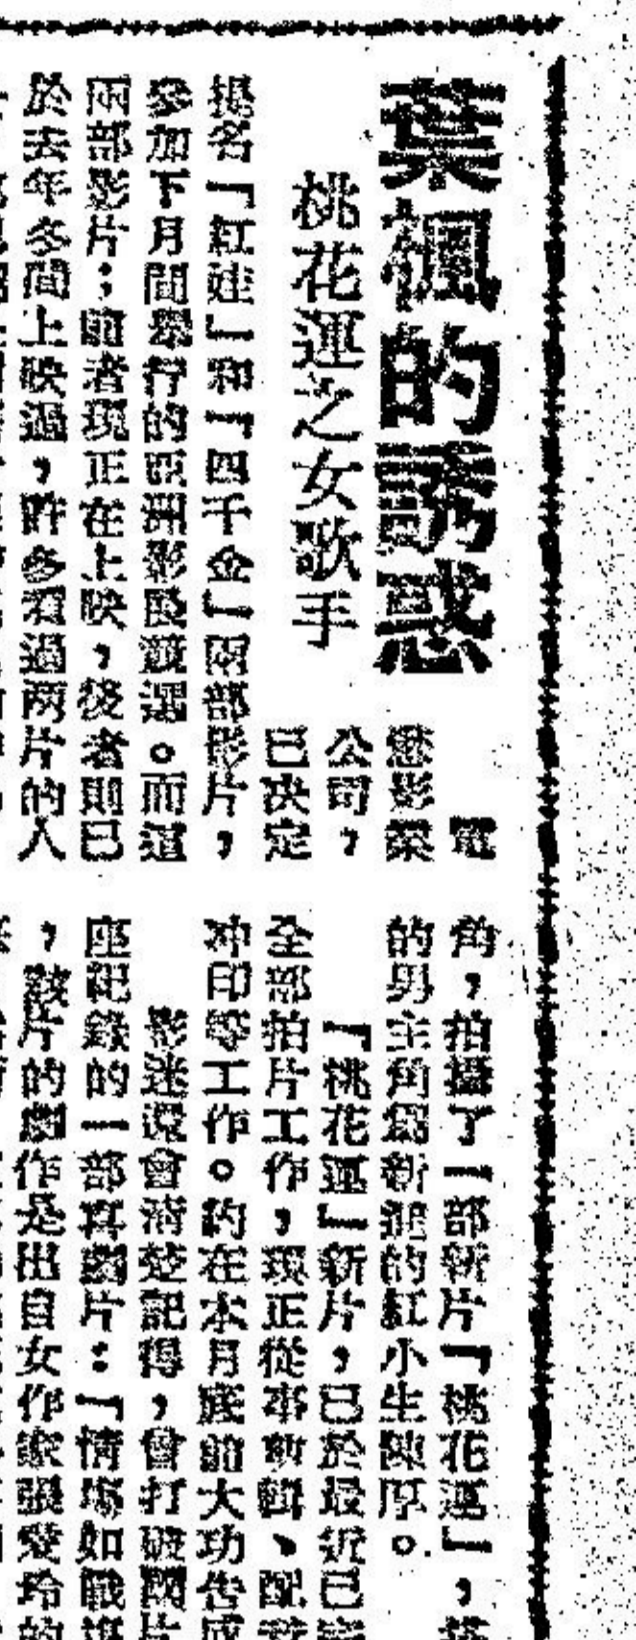 葉楓的誘惑
桃花運之女歌手
電
懋影業
公司，
已決定
提名「紅娃」和「四千金」兩部影片，
參加下月間舉行的亞洲影展競選。而這
兩部影片：前者現正在上映，後者則已
於去年冬間上映過，許多看過兩片的人
角，拍攝了一部新片「桃花運」，
的男主角為新進的紅小生陳厚。
「桃花運」新片，已於最近已
全部拍片工作，現正從事剪輯、配
冲印等工作。約在本月底前大功告成
影迷還會清楚記得，曾打破國片
座記錄的一部喜劇片：「情場如戰
，該片的劇作是出自女作家張愛玲的